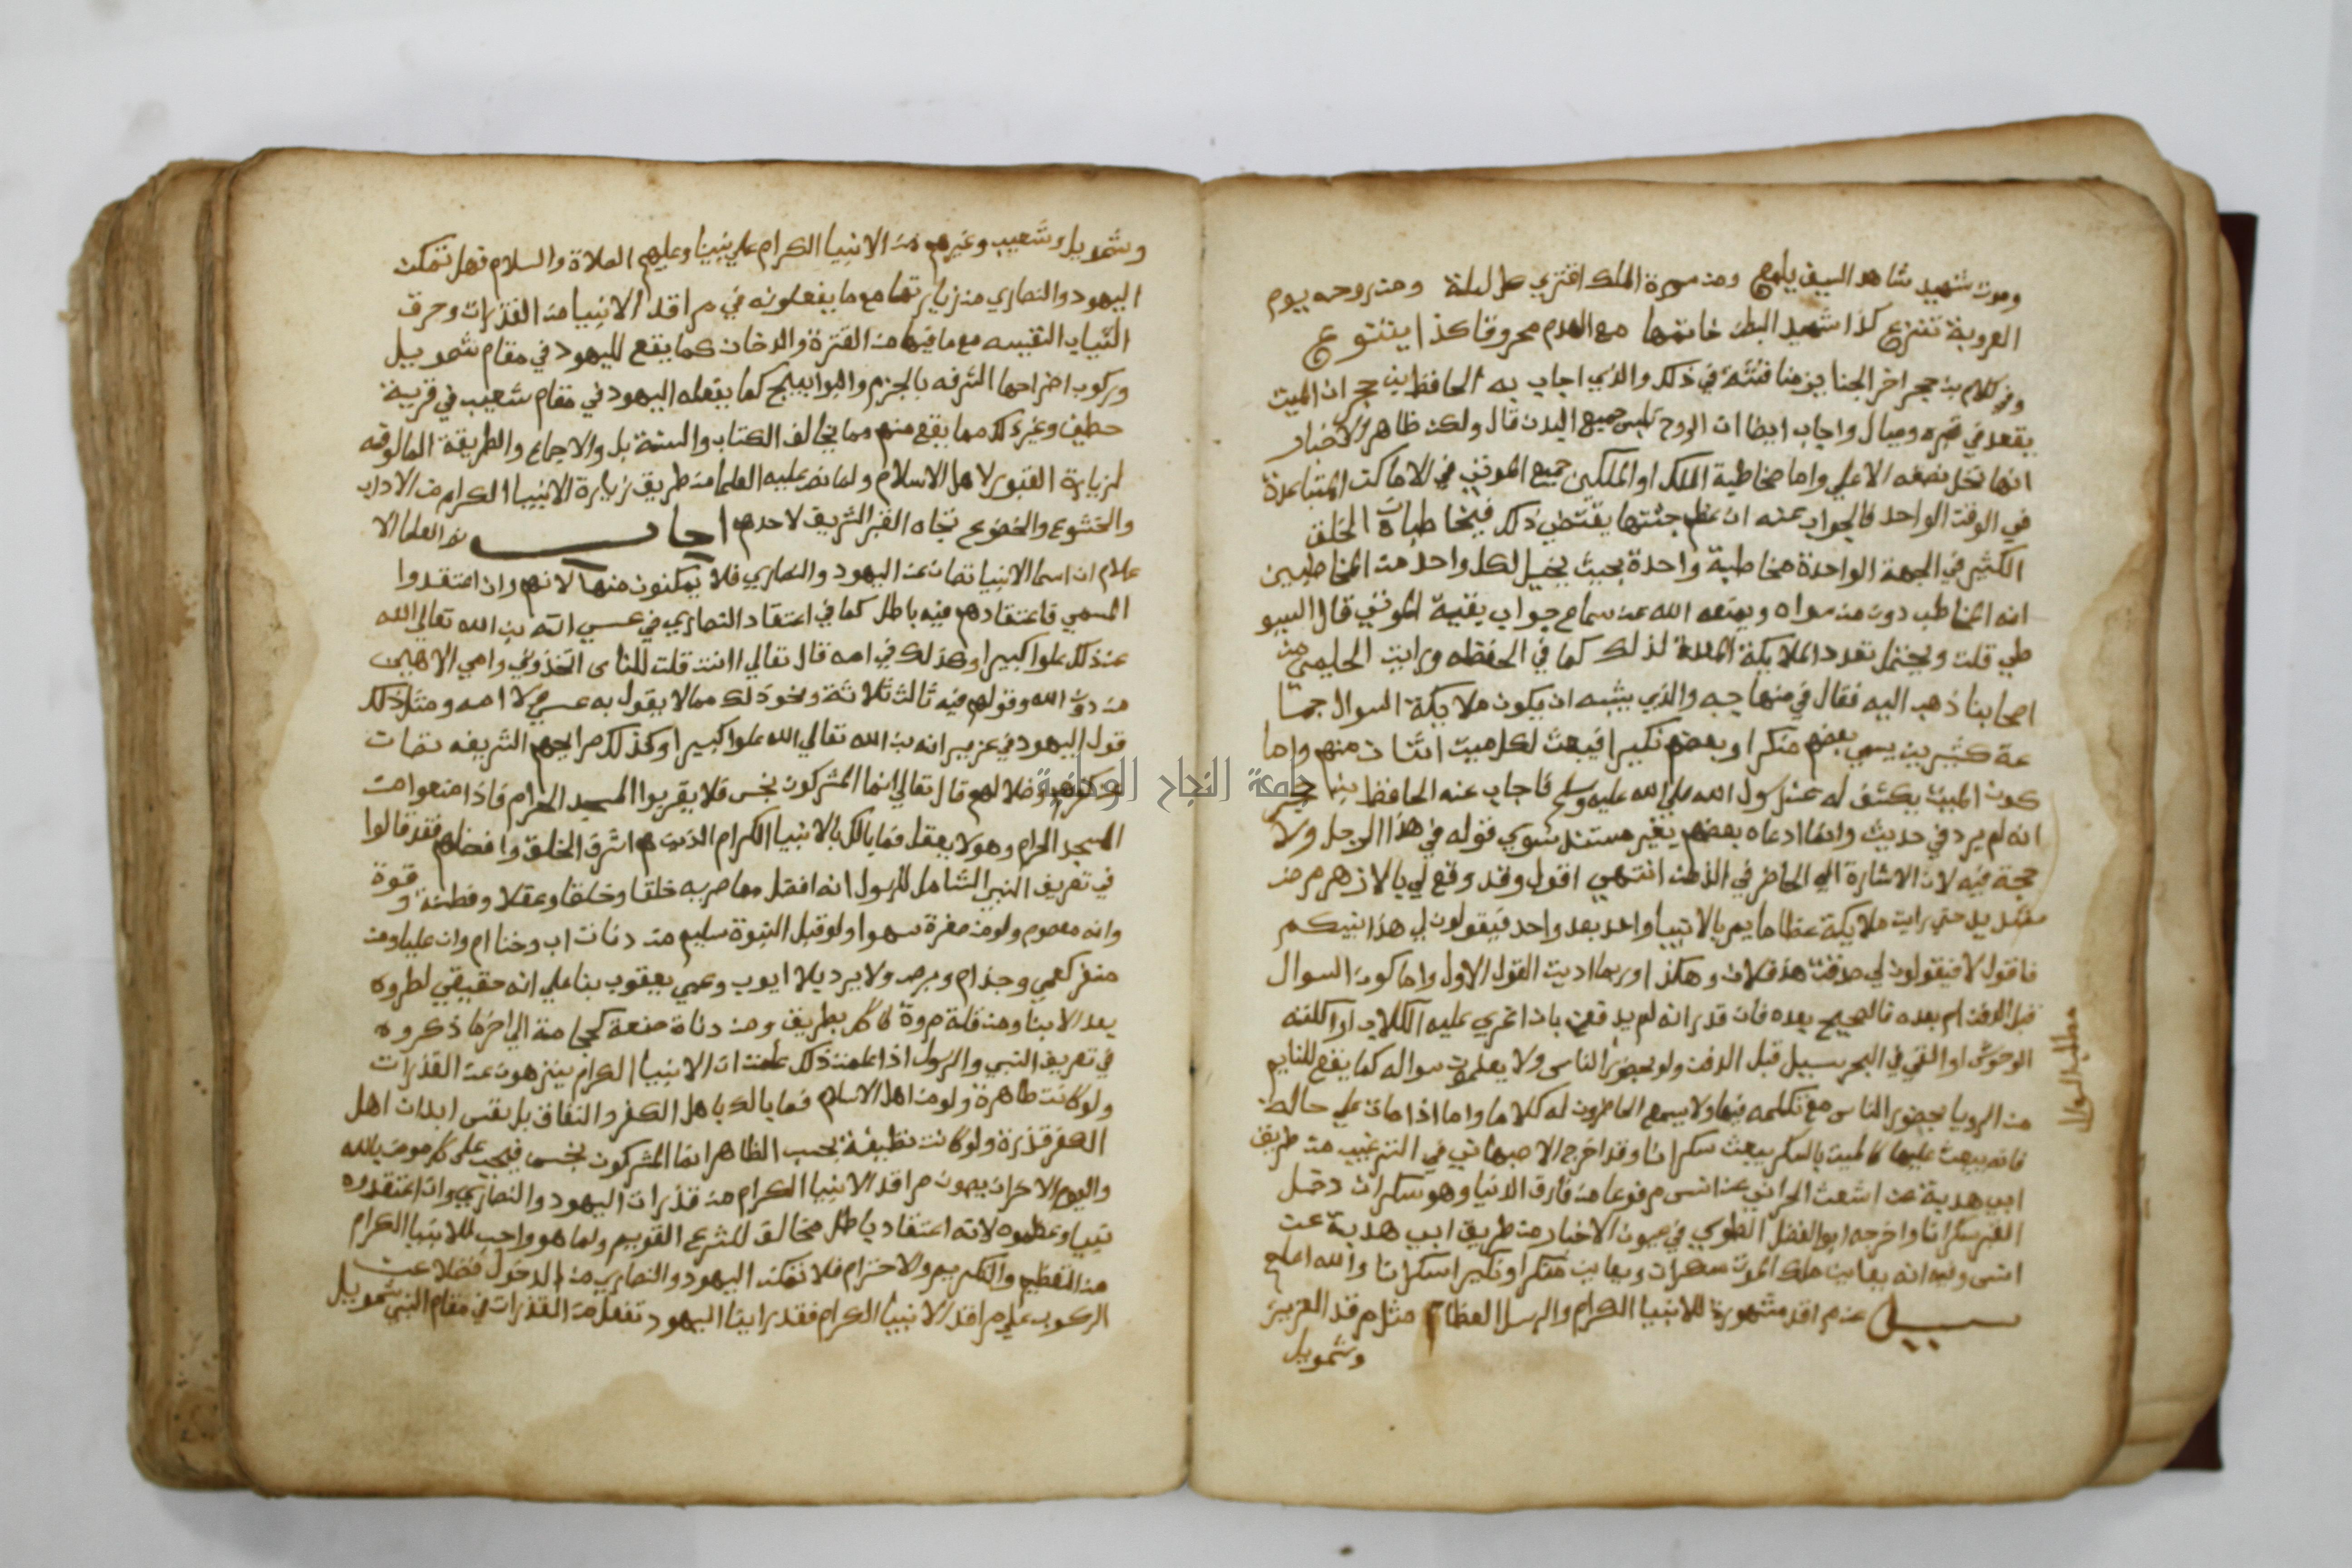 وموت شهيد شاهد السيف يلمع ومن سورة الملك اقتري كل ليلة ومن روحه يوم
العروبة تنتزع كذا شهيد البطن خاتمها مع الهدم محروقا كذا يتنوع
وفي كلام بن حجر اخر الجنايز منا فتنته في ذلك والذي اجاب به الحافظ بن حجر ان الميت
يقعد في قبره ويسال واجاب ايضا ان الروح تلبس جميع البدن قال ولكن ظاهر الاخبار
انها تحل نصفه الاعلي واما مخاطبة الملك او الملكين جميع الموتى في الاماكن المتباعدة
في الوقت الواحد فالجواب عنه ان عظم جثتها يقتضي ذلك فيخاطبان الخلق
الكثير في الجهة الواحدة مخاطبة واحدة بحيث يخيل لكل واحد من المخاطبين
انه المخاطب دون من سواه ويمنعه الله من سماع جواب بقية الموتى قال السيو
طي قلت ويحتمل تعدد الملايكة المعدة لذلك كما في الحفظه ورايت الحليمي من
اصحابنا ذهب اليه فقال في منهاجه والذي يشبه ان يكون ملايكة السوال جما
عة كثيرين يسمي بعضهم منكرا وبعضهم نكيرا فيبعث لكل ميت اثنان منهم واما
كون الميت يكشف له عن رسول الله صلي الله عليه وسلم فاجاب عنه الحافظ بن حجر
انه لم يرد في حديث وانما ادعاه بعضهم بغير مستند سوي قوله في هذا الرجل ولا
حجة فيه لان الاشارة الي الحاضر في الذهن انتهي اقول وقد وقع لي بالازهر مرض
شديد حتي رايت ملايكة عظاما يمر بالانبيا واحد بعد واحد فيقولون لي هذا نبيكم
فاقول لا فيقولون لي صدقت هذا فلان وهكذا وربما اديت القول الاول واما كون السوال
قبل الدفن ام بعده فالصحيح بعده فان قدر انه لم يدفن بان اتحري عليه الكلاب او اكلته
الوحوش او القي في البحر سيل قبل الدفن ولو بحضور الناس ولا يعلمون سواله كما يقع للنايم
من الرويا بحضور الناس مع تكلمه فيها ولا يسمع الحاضرون له كلاما واما اذا مات علي حالة
فانه يبعث عليها كالميت بالسكر يبعث سكرانا وقد اخرج الاصبهاني في الترغيب من طريق
ابي هدية عن اشعث الحراني عن انس مرفوعا من فارق الدنيا وهو سكران دخل
القبر سكرانا واخرجه ابو الفضل الطوسي في عيون الاخبار من طريق ابي هدية عن
انس وفيه انه يعاين ملك الموت سكران ويعاين منكرا ونكيرا سكرانا والله اعلم
سيل عن مراقد مشهورة للانبيا الكرام والرسل العظام مثل مرقد العزيز
وشمويل
مطلب السوال
وشمويل وشعيب وغيرهم من الانبيا الكرام علي نبينا وعليهم الصلاة والسلام فهل تمكن
اليهود والنصاري من زيارتها مع ما يفعلونه في مراقد الانبيا من القذرات وحرق
الثياب النقيسه مع ما فيها من القترة والدخان كما يقع لليهود في مقام شمويل
وركوب اضراحها الشرفه بالجزم والبوابيج كما يفعله اليهود في مقام شعيب في قرية
حطين وغير ذلك مما يقع منهم مما يخالف الكتاب والسنة بل والاجماع والطريقة المالوفه
لزيارة القبور لاهل الاسلام ولما نص عليه العلما من طريق زيارة الانبيا الكرام من الاداب
والخشوع والخضوع تجاه القبر الشريف لاحدهم اجاب نص العلما الا
علام ان اسما الانبيا تصان عن اليهود والنصاري فلا يمكنون منها لانهم وان اعتقدوا
المسمي فاعتقادهم فيه باطل كما في اعتقاد النصاري في عسي انه بن الله تعالي الله
عن ذلك علوا كبيرا وكذلك في امه قال تعالي اانت قلت للناس اتخذوني وامي الاهين
من دون الله وقولهم فيه ثالث ثلاثة ونحو ذلك مما لا يقول به عسي لا امه ومثل ذلك
قول اليهود في عزير انه بن الله تعالي الله علوا كبيرا وكذلك ضرايحهم الشريفه تصان
عن كفرهم وضلالهم قال تعالي انما المشركون نجس فلا يقربوا المسجد الحرام فاذا منعوا من
المسجد الحرام وهو لا يعقل فما بالك بالانبيا الكرام الذين هم اشرف الخلق وافضلهم فقد قالوا
في تعريف النبي الشامل للرسول انه افضل معاصريه خلقا وخلقا وعقلا وفطنة وقوة
وانه معصوم ولو من صغرة سهوا ولو قبل النبوة سليم من دنات اب وخنا ام وان عليا ومن
منفر كعمي وجذام وبرص ولا يرد بلا ايوب وعمي يعقوب بنا علي انه حقيقي لطروه
بعد الانبا ومن قلة مروة كاكل بطريق ومن دناة صنعة كحجامة الي اخر ما ذكروه
في تعريف النبي والرسول اذا علمت ذلك علمت ان الانبيا الكرام ينزهون عن القذرات
ولو كانت طاهرة ولو من اهل الاسلام فما بالك باهل الكفر والنفاق بل نفس ابدان اهل
الكفر قذرة ولو كانت نظيفة بحسب الظاهر انما المشركون نجس فيجب علي كل مومن بالله
واليوم الاخر ان يصون مراقد الانبيا الكرام من قذرات اليهود والنصاري وان اعتقدوه
نبيا وعظموه لانه اعتقاد باطل مخالف للشرع القويم ولما هو واجب للانبيا الكرام
من التعظيم والتكريم والاحترام فلا تمكن اليهود والنصاري من الدخول فضلا عن
الركوب علي مراقد الانبيا الكرام فقد راينا اليهود تفعل من القذرات في مقام النبي شمويل
جامعة النجاح الوطنية